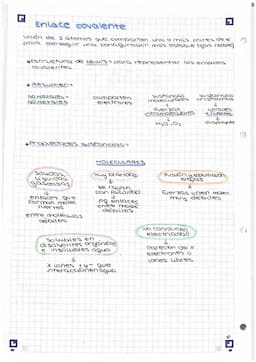 Enlace covalente
Unión de 2 átomos que comparten uno o más pares de e-
para conseguir una configuración más estable (gas noble)
• Estructura de Lewis → para representar los enlaces
covalentes
• RESUMEN:
NO METALES -
NO METALES
comparten
electrones
sustancias
moleculares
fuerzas
intermoleculares
H₂O, O₂
sustancias
cristalinas
diamante
• Propiedades sustancias:
MOLECULARES
sólidas,
líquidas,
gaseosas
enlaces que
forman
fuertes
entre moléculas
débiles
muy blandas
se rayan
con facilidad
pq enlaces
entre
débiles
fusión y ebullición
bajas
fuerzas unen
muy débiles
solubles en
disolventes orgánicos
e insolubles agua
x iones + y - que
interaccionen agua
no conducen
electricidad
carecen de
electrones o
iones libres